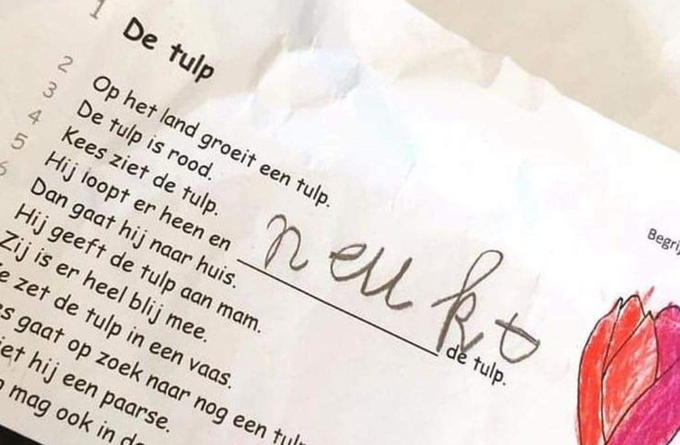 1 De tulp
2 Op het land groeit een tulp.
3 De tulp is rood.
4 Kees ziet de tulp.
5 Hij loopt er heen en neukt de tulp.
6 Dan gaat hij naar huis.
Hij geeft de tulp aan mam.
Zij is er heel blij mee.
e zet de tulp in een vaas.
es gaat op zoek naar nog een tul
iet hij een paarse.
mag ook in
Begrij